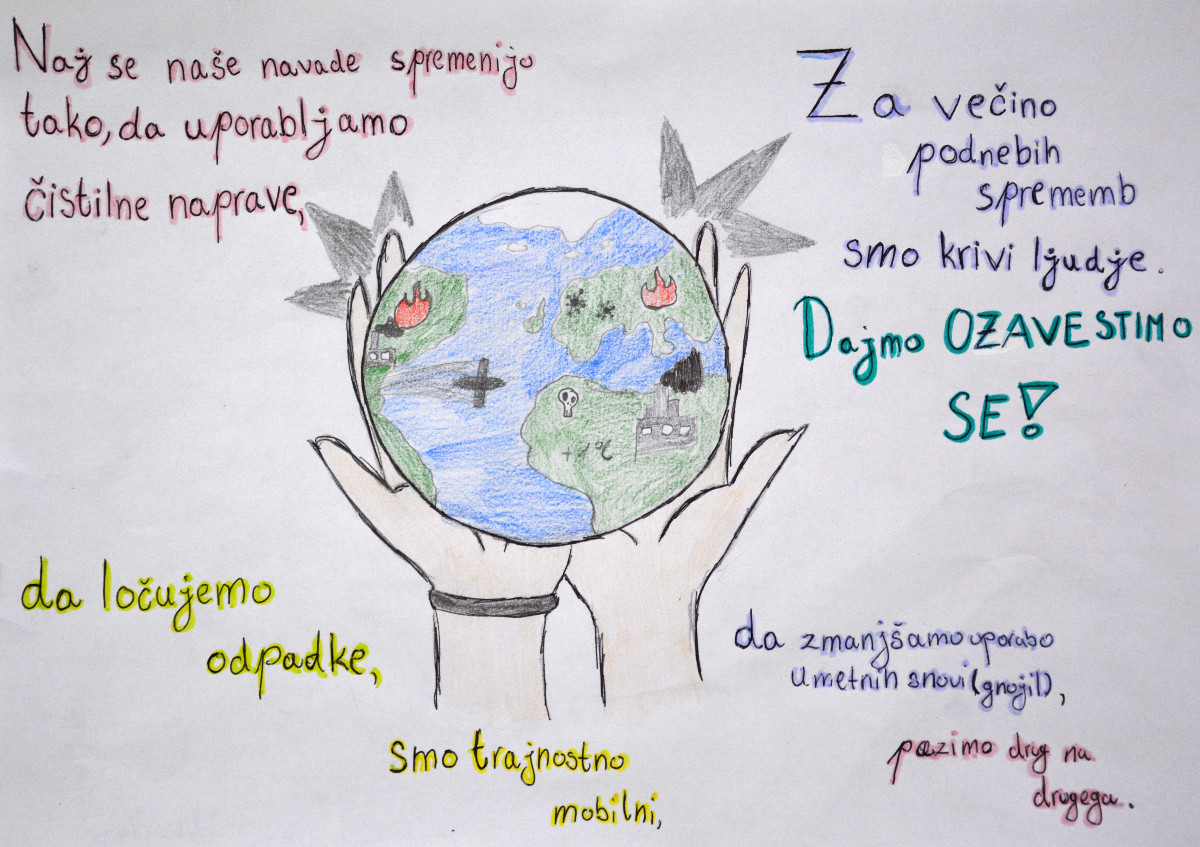 Naj se naše navade spremenijo
tako, da uporabljamo
čistilne naprave,
Za večino
podnebih
sprememb
smo krivi ljudje.
Dajmo OZAVESTIMO
SE!
+1°C
da ločujemo
odpadke,
smo trajnostno
mobilni,
da zmanjšamo uporabo
umetnih snovi (gnojil),
pazimo drug na
drugega.